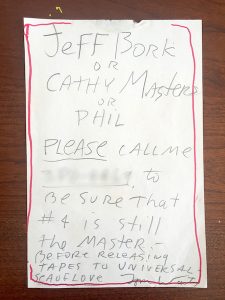 JEFF BORK
OR
CATHY Masters
or
PHIL
PLEASE CALL ME
, to
BE SURE THAT
#4 is still
the MASTER –
BEFORE RELEASING
TAPES TO UNIVERSAL –